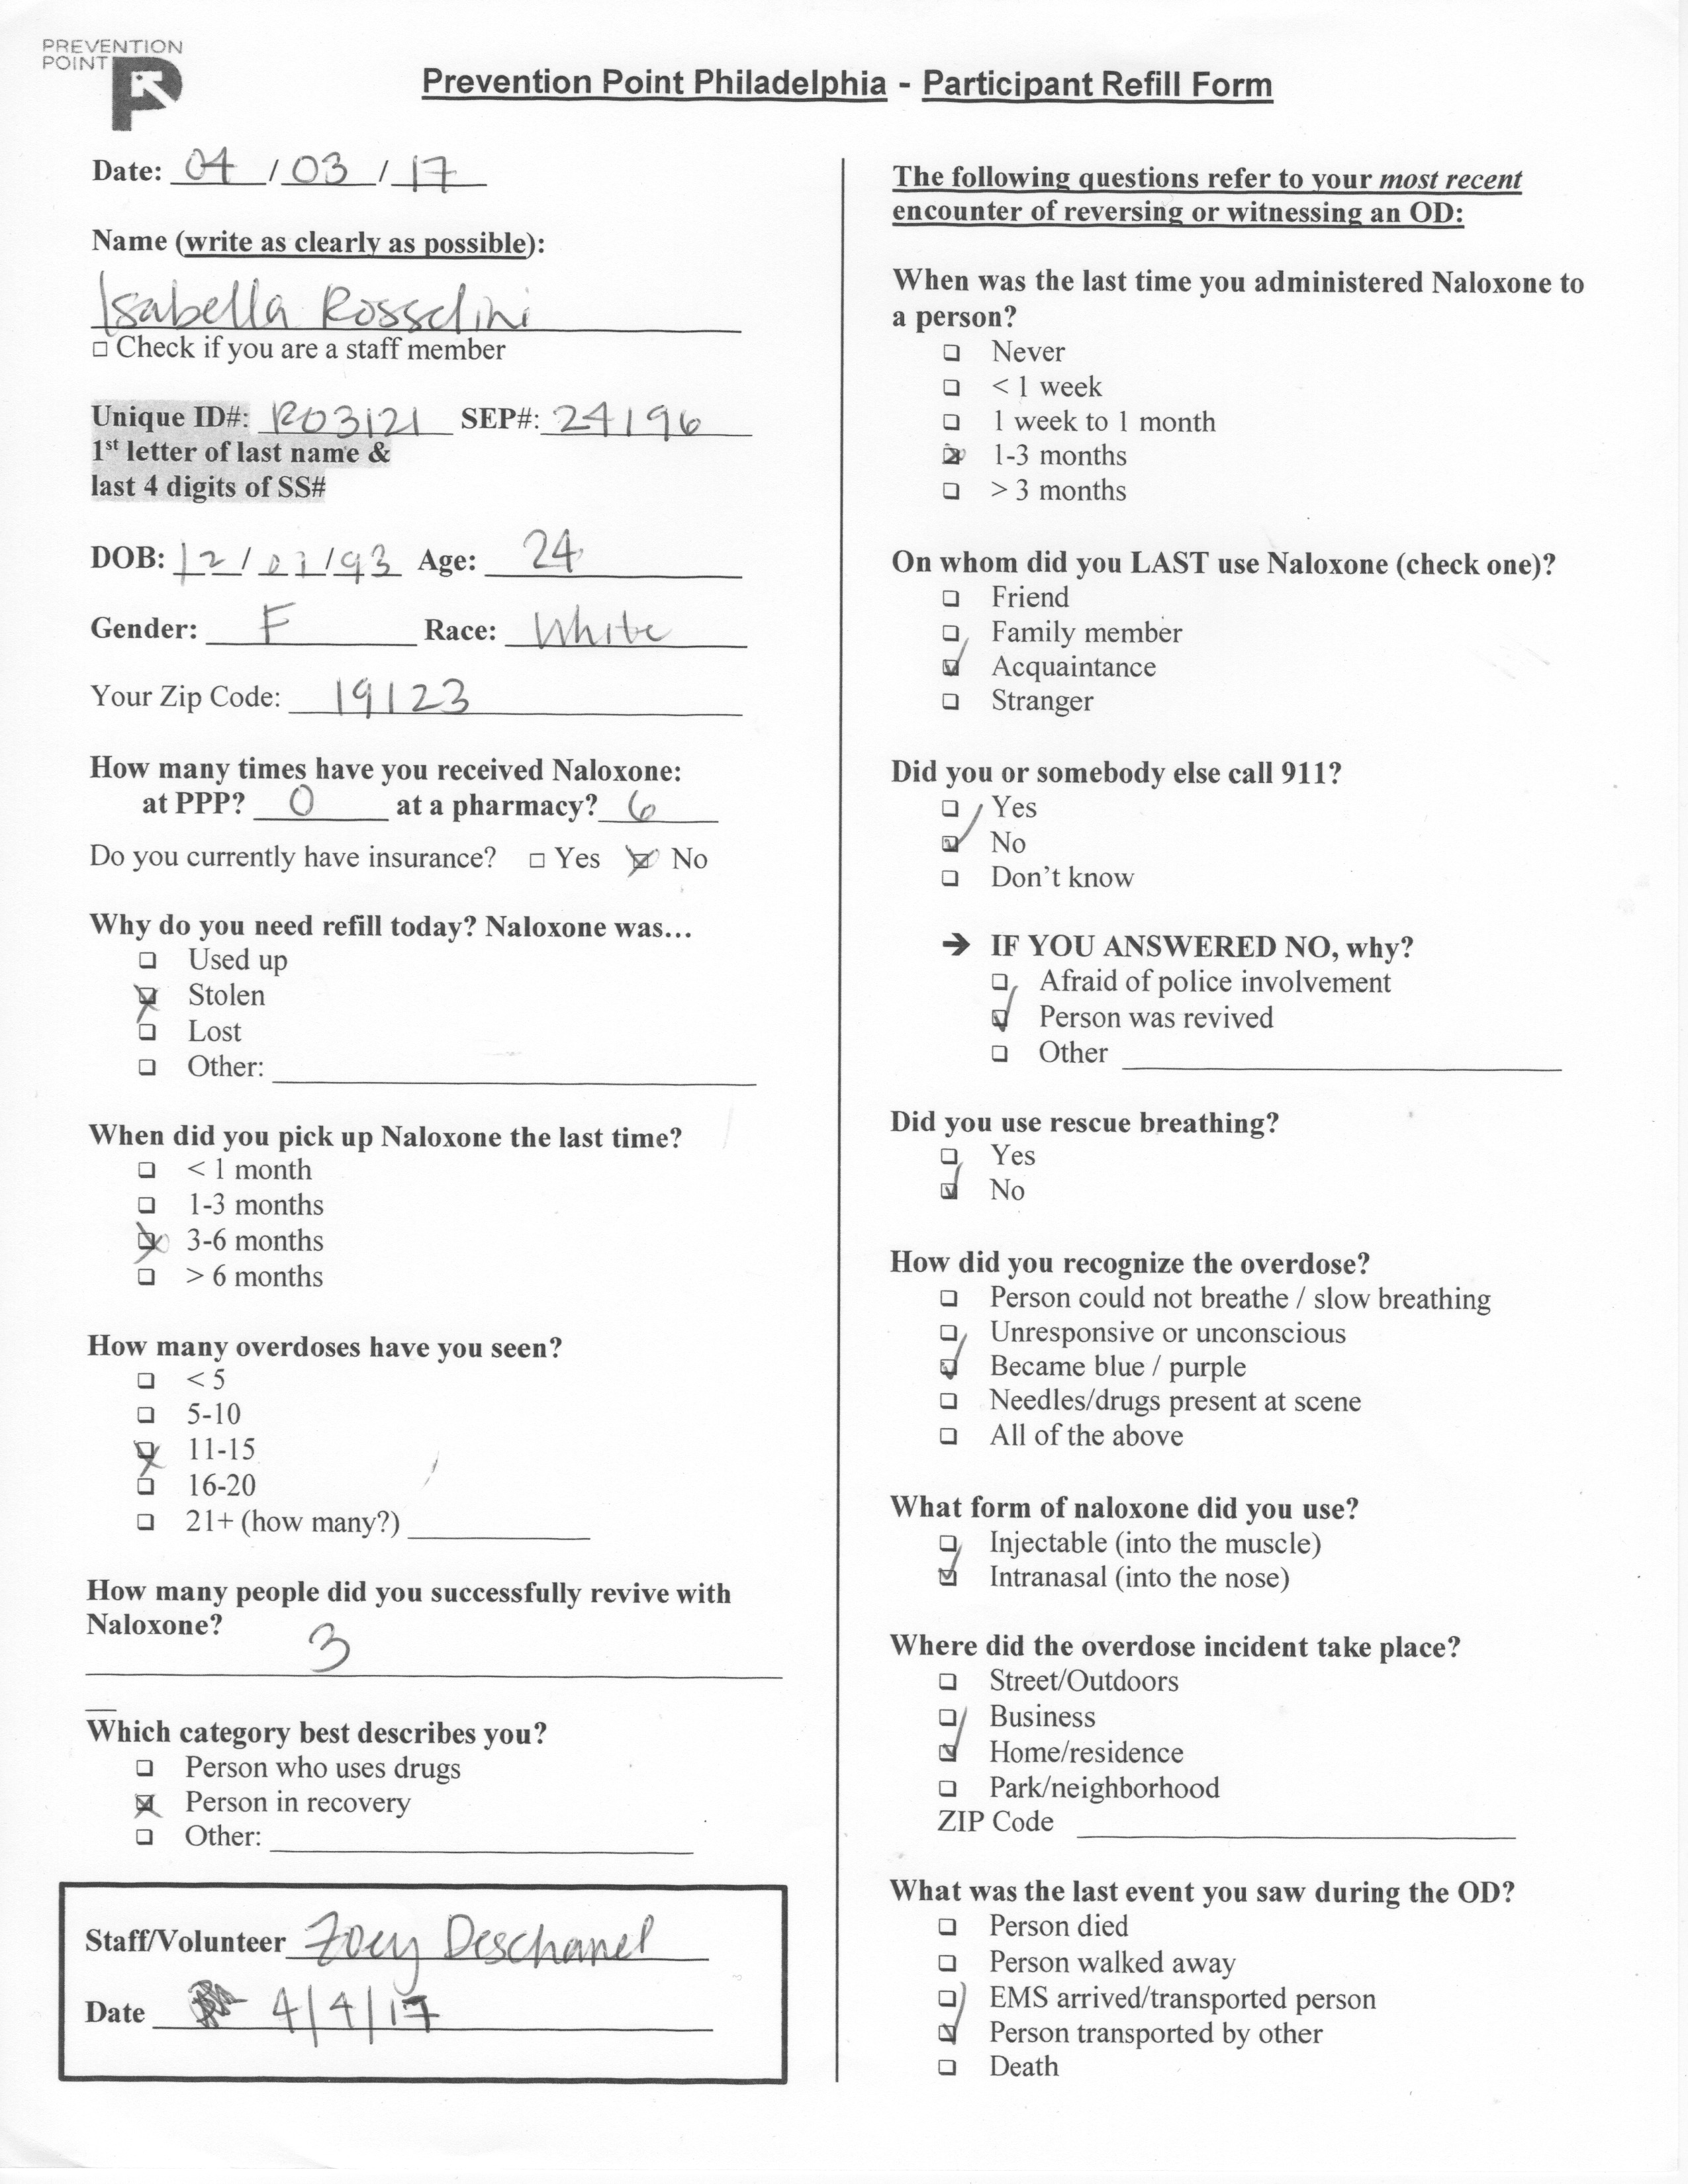 PREVENTION
POINT
Prevention Point Philadelphia - Participant Refill Form
Date: 04 / 03 / 17
Name (write as clearly as possible):
Isabella Rosselini
□ Check if you are a staff member
Unique ID#: R03121 SEP#: 24196
1st letter of last name &
last 4 digits of SS#
DOB: 12/01/93 Age: 24
Gender: F Race: White
Your Zip Code: 19123
How many times have you received Naloxone:
at PPP? 0 at a pharmacy? 6
Do you currently have insurance? □ Yes ☒ No
Why do you need refill today? Naloxone was...
❑ Used up
☒ Stolen
❑ Lost
❑ Other:
When did you pick up Naloxone the last time?
❑ < 1 month
❑ 1-3 months
☒ 3-6 months
❑ > 6 months
How many overdoses have you seen?
❑ < 5
❑ 5-10
☒ 11-15
❑ 16-20
❑ 21+ (how many?)
How many people did you successfully revive with
Naloxone?
3
Which category best describes you?
❑ Person who uses drugs
☒ Person in recovery
❑ Other:
Staff/Volunteer Zoey Deschanel
Date 4/4/17
The following questions refer to your most recent
encounter of reversing or witnessing an OD:
When was the last time you administered Naloxone to
a person?
❑ Never
❑ < 1 week
❑ 1 week to 1 month
☒ 1-3 months
❑ > 3 months
On whom did you LAST use Naloxone (check one)?
❑ Friend
❑ Family member
☑ Acquaintance
❑ Stranger
Did you or somebody else call 911?
❑ Yes
☑ No
❑ Don't know
➔ IF YOU ANSWERED NO, why?
❑ Afraid of police involvement
☑ Person was revived
❑ Other
Did you use rescue breathing?
❑ Yes
☑ No
How did you recognize the overdose?
❑ Person could not breathe / slow breathing
❑ Unresponsive or unconscious
☑ Became blue / purple
❑ Needles/drugs present at scene
❑ All of the above
What form of naloxone did you use?
❑ Injectable (into the muscle)
☑ Intranasal (into the nose)
Where did the overdose incident take place?
❑ Street/Outdoors
❑ Business
☑ Home/residence
❑ Park/neighborhood
ZIP Code
What was the last event you saw during the OD?
❑ Person died
❑ Person walked away
❑ EMS arrived/transported person
☑ Person transported by other
❑ Death